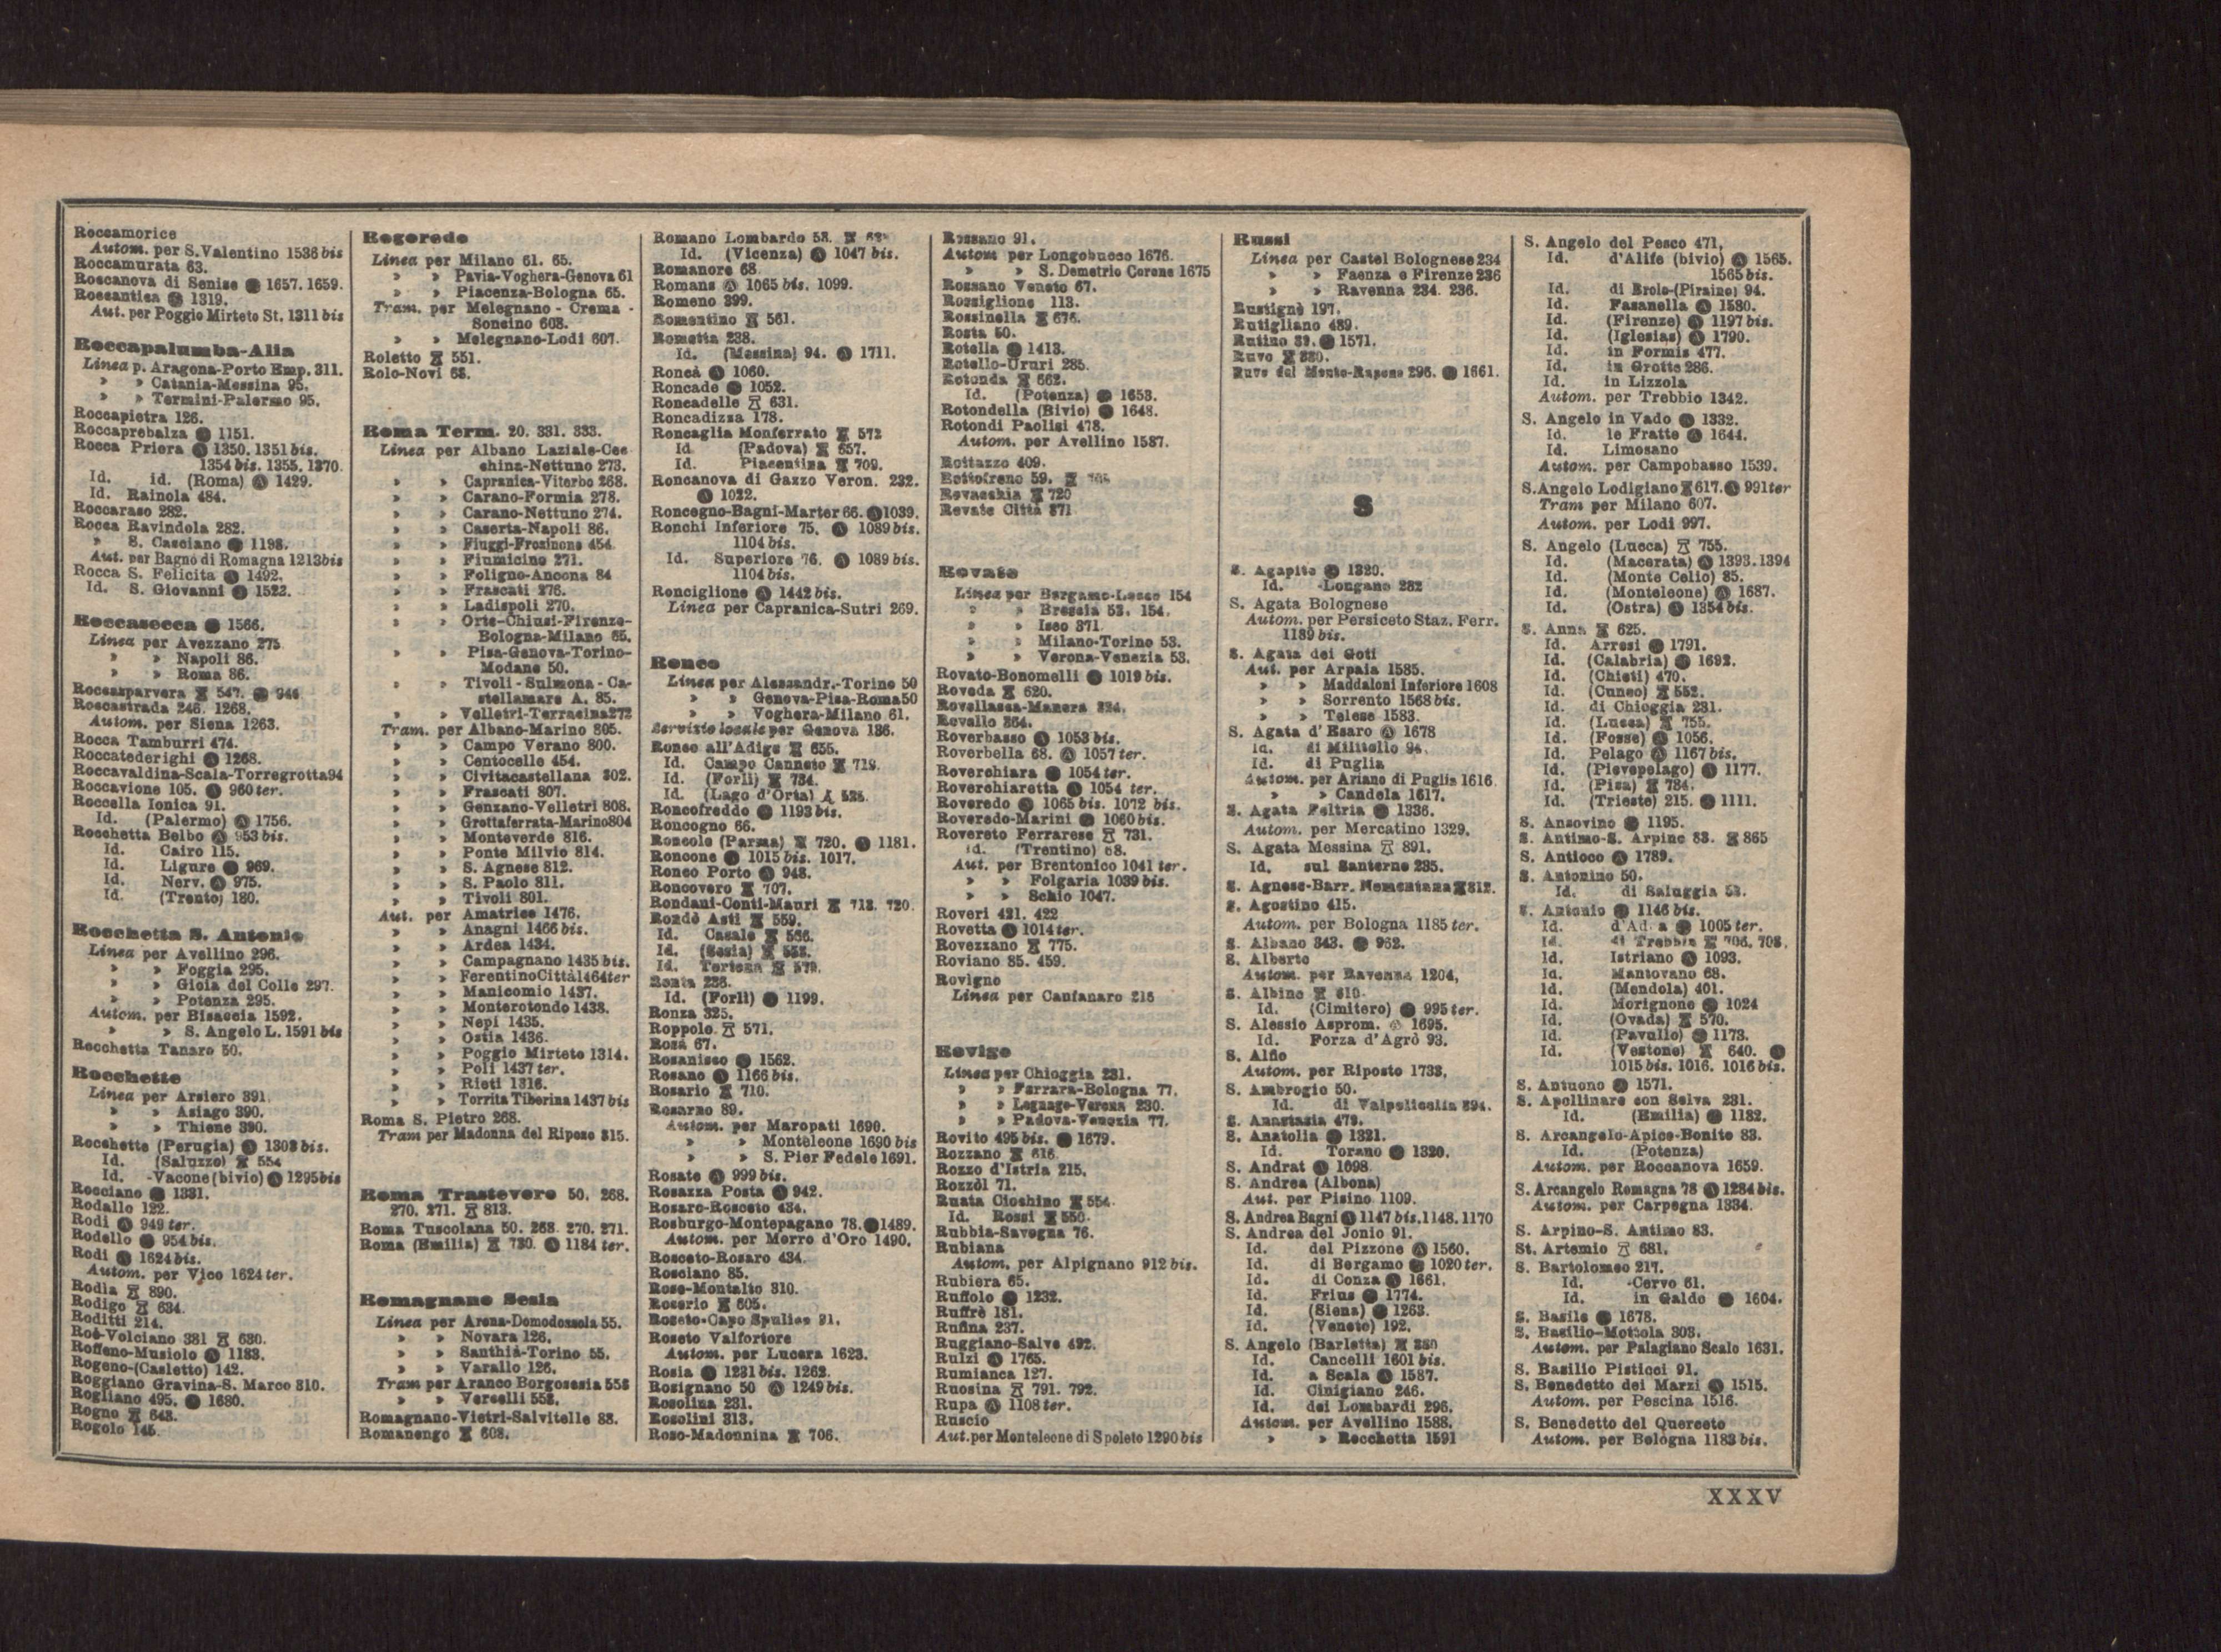 Roccamorice
Autom. per S.Valentino 1536 bis
Roccamurata 63.
Roccanova di Senise Ⓐ 1657. 1659.
Roccantica Ⓐ 1319.
Aut. per Poggio Mirteto St. 1311 bis
Roccapalumba-Alia
Linea p. Aragona-Porto Emp. 311.
» » Catania-Messina 95.
» » Termini-Palermo 95.
Roccapietra 126.
Roccaprebalza Ⓐ 1151.
Rocca Priora Ⓐ 1350. 1351 bis.
1354 bis. 1355. 1370.
Id. id. (Roma) Ⓐ 1429.
Id. Rainola 484.
Roccaraso 282.
Rocca Ravindola 282.
» S. Casciano Ⓐ 1193.
Aut. per Bagno di Romagna 1213 bis
Rocca S. Felicita Ⓐ 1492.
Id. S. Giovanni Ⓐ 1523.
Roccasecca Ⓐ 1566.
Linea per Avezzano 275
» » Napoli 86.
» » Roma 86.
Roccasparvera 547. Ⓐ 944
Roccastrada 246. 1268.
Autom. per Siena 1263.
Rocca Tamburri 474.
Roccatederighi Ⓐ 1268.
Roccavaldina-Scala-Torregrotta 94
Roccavione 105. Ⓐ 960 ter.
Roccella Ionica 91.
Id. (Palermo) Ⓐ 1756.
Rocchetta Belbo Ⓐ 953 bis.
Id. Cairo 115.
Id. Ligure Ⓐ 969.
Id. Nerv. Ⓐ 975.
Id. (Trento) 180.
Rocchetta S. Antonio
Linea per Avellino 296.
» » Foggia 295.
» » Gioia del Colle 297.
» » Potenza 295.
Autom. per Bisaccia 1592.
» » S. Angelo L. 1591 bis
Rocchetta Tanaro 50.
Rocchette
Linea per Arsiero 391.
» » Asiago 390.
» » Thiene 390.
Rocchette (Perugia) Ⓐ 1303 bis.
Id. (Saluzzo) 554
Id. -Vacone (bivio) Ⓐ 1295 bis
Rocciano Ⓐ 1331.
Rodallo 122.
Rodi Ⓐ 949 ter.
Rodello Ⓐ 954 bis.
Rodi Ⓐ 1624 bis.
Autom. per Vico 1624 ter.
Rodìa 890.
Rodigo 634.
Roditti 214.
Roè-Volciano 381 630.
Roffeno-Musiolo Ⓐ 1183.
Rogeno-(Casletto) 142.
Roggiano Gravina-S. Marco 310.
Rogliano 495. Ⓐ 1680.
Rogno 643.
Rogolo 145.
Rogoredo
Linea per Milano 61. 65.
» » Pavia-Voghera-Genova 61
» » Piacenza-Bologna 65.
Tram. per Melegnano - Crema -
Soncino 603.
» » Melegnano-Lodi 607.
Roletto 551.
Rolo-Novi 68.
Roma Term. 20. 331. 333.
Linea per Albano Laziale-Cecchina-Nettuno 273.
» » Capranica-Viterbo 268.
» » Carano-Formia 278.
» » Carano-Nettuno 274.
» » Caserta-Napoli 86.
» » Fiuggi-Frosinone 454
» » Fiumicino 271.
» » Foligno-Ancona 84
» » Frascati 276.
» » Ladispoli 270.
» » Orte-Chiusi-Firenze-
Bologna-Milano 65.
» » Pisa-Genova-Torino-
Modane 50.
» » Tivoli - Sulmona - Ca-
stellamare A. 85.
» » Velletri-Terracina 272
Tram. per Albano-Marino 805.
» » Campo Verano 800.
» » Centocelle 454.
» » Civitacastellana 302.
» » Frascati 807.
» » Genzano-Velletri 808.
» » Grottaferrata-Marino 804
» » Monteverde 816.
» » Ponte Milvio 814.
» » S. Agnese 812.
» » S. Paolo 811.
» » Tivoli 801.
Aut. per Amatrice 1476.
» » Anagni 1466 bis.
» » Ardea 1434.
» » Campagnano 1435 bis.
» » Ferentino Città 1464 ter
» » Manicomio 1437.
» » Monterotondo 1438.
» » Nepi 1435.
» » Ostia 1436.
» » Poggio Mirteto 1314.
» » Poli 1437 ter.
» » Rieti 1316.
» » Torrita Tiberina 1437 bis
Roma S. Pietro 268.
Tram per Madonna del Riposo 815.
Roma Trastevere 50. 268.
270. 271. 813.
Roma Tuscolana 50. 268. 270. 271.
Roma (Emilia) 730. Ⓐ 1184 ter.
Romagnano Sesia
Linea per Arona-Domodossola 55.
» » Novara 126.
» » Santhià-Torino 55.
» » Varallo 126.
Tram per Aranco Borgosesia 558
» » Vercelli 558.
Romagnano-Vietri-Salvitelle 88.
Romanengo 603.
Romano Lombardo 53.
Id. (Vicenza) Ⓐ 1047 bis.
Romanore 68
Romans Ⓐ 1065 bis. 1099.
Romeno 399.
Romentino 561.
Rometta 238.
Id. (Messina) 94. Ⓐ 1711.
Roncà Ⓐ 1060.
Roncade Ⓐ 1052.
Roncadelle 631.
Roncadizza 178.
Roncaglia Monferrato 572
Id (Padova) 657.
Id. Piacentina 709.
Roncanova di Gazzo Veron. 232.
Ⓐ 1022.
Roncegno-Bagni-Marter 66. Ⓐ 1039.
Ronchi Inferiore 75. Ⓐ 1089 bis.
1104 bis.
Id. Superiore 76. Ⓐ 1089 bis.
1104 bis.
Ronciglione Ⓐ 1442 bis.
Linea per Capranica-Sutri 269.
Ronco
Linea per Alessandr.-Torino 50
» » Genova-Pisa-Roma 50
» » Voghera-Milano 61.
Servizio locale per Genova 136.
Ronco all'Adige 655.
Id. Campo Canneto 719.
Id. (Forlì) 734.
Id. (Lago d'Orta)
Roncofreddo Ⓐ 1193 bis.
Roncogno 66.
Roncole (Parma) 720. Ⓐ 1181.
Roncone Ⓐ 1015 bis. 1017.
Ronco Porto Ⓐ 948.
Roncovero 707.
Rondani-Conti-Mauri 713. 720.
Rondò Asti 559.
Id. Casale 566.
Id. (Sesia) 558.
Id. Tortona
Ronta 236.
Id. (Forlì) Ⓐ 1199.
Ronza 325.
Roppolo 571.
Rosà 67.
Rosanisco Ⓐ 1562.
Rosano Ⓐ 1166 bis.
Rosario 710.
Rosarno 89.
Autom. per Maropati 1690.
» » Monteleone 1690 bis
» » S. Pier Fedele 1691.
Rosate Ⓐ 999 bis.
Rosazza Posta Ⓐ 942.
Rosaro-Rosceto 434.
Rosburgo-Montepagano 78. Ⓐ 1489.
Autom. per Morro d'Oro 1490.
Rosceto-Rosaro 434.
Rosciano 85.
Rose-Montalto 310.
Roserio 605.
Roseto-Capo Spulico 91.
Roseto Valfortore
Autom. per Lucera 1623.
Rosia Ⓐ 1231 bis. 1262.
Rosignano 50 Ⓐ 1249 bis.
Rosolina 231.
Rosolini 313.
Roso-Madonnina 706.
Rossano 91.
Autom per Longobucco 1676.
» » S. Demetrio Corone 1675
Rossano Veneto 67.
Rossiglione 113.
Rossinella 676.
Rosta 50.
Rotella Ⓐ 1413.
Rotello-Ururi 285.
Rotonda 662.
Id. (Potenza) Ⓐ 1653.
Rotondella (Bivio) Ⓐ 1648.
Rotondi Paolisi 478.
Autom. per Avellino 1587.
Rottazzo 409.
Rottofreno 59.
Rovacchia 720
Rovate Città 371
Rovato
Linea per Bergamo-Lecco 154
» » Brescia 53. 154.
» » Iseo 371
» » Milano-Torino 53.
» » Verona-Venezia 53.
Rovato-Bonomelli Ⓐ 1019 bis.
Roveda 620.
Rovellasca-Manera 324.
Rovello 364.
Roverbasso Ⓐ 1053 bis.
Roverbella 68. Ⓐ 1057 ter.
Roverchiara Ⓐ 1054 ter.
Roverchiaretta Ⓐ 1054 ter.
Roveredo Ⓐ 1065 bis. 1072 bis.
Roveredo-Marini Ⓐ 1060 bis.
Rovereto Ferrarese 731.
Id. (Trentino) 68.
Aut. per Brentonico 1041 ter.
» » Folgaria 1039 bis.
» » Schio 1047.
Roveri 421. 422
Rovetta Ⓐ 1014 ter.
Rovezzano 775.
Roviano 85. 459.
Rovigno
Linea per Canfanaro 216
Rovigo
Linea per Chioggia 231.
» » Ferrara-Bologna 77.
» » Legnago-Verona 230.
» » Padova-Venezia 77.
Rovito 495 bis. Ⓐ 1679.
Rozzano 616
Rozzo d'Istria 215.
Rozzòl 71.
Ruata Ciochino 554
Id. Rossi 550
Rubbia-Savogna 76.
Rubiana
Autom. per Alpignano 912 bis.
Rubiera 65.
Ruffolo Ⓐ 1232.
Ruffrè 181.
Rufina 237.
Ruggiano-Salve 492.
Rulzi Ⓐ 1765.
Rumianca 127.
Ruosina 791. 792.
Rupa Ⓐ 1108 ter.
Ruscio
Aut. per Monteleone di Spoleto 1290 bis
Russi
Linea per Castel Bolognese 234
» » Faenza e Firenze 236
» » Ravenna 234. 236.
Rustignè 197.
Rutigliano 489.
Rutino 89. Ⓐ 1571.
Ruvo 330.
Ruvo del Monte-Rapone 296. Ⓐ 1661.
S
S. Agapito Ⓐ 1320.
Id. -Longano 282
S. Agata Bolognese
Autom. per Persiceto Staz. Ferr.
1189 bis.
S. Agata dei Goti
Aut. per Arpaia 1585.
» » Maddaloni Inferiore 1608
» » Sorrento 1568 bis.
» » Telese 1583.
S. Agata d'Esaro Ⓐ 1678
Id. di Militello 94.
Id. di Puglia
Autom. per Ariano di Puglia 1616
» » Candela 1617.
S. Agata Feltria Ⓐ 1336.
Autom. per Mercatino 1329.
S. Agata Messina 891.
Id. sul Santerno 235.
S. Agnese-Barr. Nomentana 812.
S. Agostino 415.
Autom. per Bologna 1185 ter.
S. Albano 343. Ⓐ 962.
S. Alberto
Autom. per Ravenna 1204.
S. Albino 610
Id. (Cimitero) Ⓐ 995 ter.
S. Alessio Asprom. Ⓐ 1695.
Id. Forza d'Agrò 93.
S. Alfio
Autom. per Riposto 1733.
S. Ambrogio 50.
Id. di Valpolicella 394.
S. Anastasia 479.
S. Anatolia Ⓐ 1321.
Id. Torano Ⓐ 1320.
S. Andrat Ⓐ 1098
S. Andrea (Albona)
Aut. per Pisino 1109.
S. Andrea Bagni Ⓐ 1147 bis. 1148. 1170
S. Andrea del Jonio 91.
Id. del Pizzone Ⓐ 1560.
Id. di Bergamo Ⓐ 1020 ter.
Id. di Conza Ⓐ 1661.
Id. Frius Ⓐ 1774.
Id. (Siena) Ⓐ 1263.
Id. (Veneto) 192.
S. Angelo (Barletta) 330
Id. Cancelli 1601 bis.
Id. a Scala Ⓐ 1587.
Id. Cinigiano 246.
Id. dei Lombardi 296.
Autom. per Avellino 1588.
» » Rocchetta 1591
S. Angelo del Pesco 471.
Id. d'Alife (bivio) Ⓐ 1565.
1565 bis.
Id. di Brolo-(Piraino) 94.
Id. Fasanella Ⓐ 1580.
Id. (Firenze) Ⓐ 1197 bis.
Id. (Iglesias) Ⓐ 1790.
Id. in Formis 477.
Id. in Grotte 286.
Id. in Lizzola
Autom. per Trebbio 1342.
S. Angelo in Vado Ⓐ 1332.
Id. le Fratte Ⓐ 1644.
Id. Limosano
Autom. per Campobasso 1539.
S. Angelo Lodigiano 617. Ⓐ 991 ter
Tram per Milano 607.
Autom. per Lodi 997.
S. Angelo (Lucca) 755.
Id. (Macerata) Ⓐ 1393. 1394
Id. (Monte Celio) 85.
Id. (Monteleone) Ⓐ 1687.
Id. (Ostra) Ⓐ 1354 bis.
S. Anna 625.
Id. Arresi Ⓐ 1791.
Id. (Calabria) Ⓐ 1692.
Id. (Chieti) 470.
Id. (Cuneo) 552.
Id. di Chioggia 231.
Id. (Lucca) 755.
Id. (Fosse) Ⓐ 1056.
Id. Pelago Ⓐ 1167 bis.
Id. (Pievepelago) Ⓐ 1177.
Id. (Pisa) 784.
Id. (Trieste) 215. Ⓐ 1111.
S. Ansovino Ⓐ 1195.
S. Antimo-S. Arpino 83. 865
S. Antioco Ⓐ 1789.
S. Antonino 50.
Id. di Saluggia 53.
S. Antonio Ⓐ 1146 bis.
Id. d'Adda Ⓐ 1005 ter.
Id. di Trebbia 706. 708.
Id. Istriano Ⓐ 1093.
Id. Mantovano 68.
Id. (Mendola) 401.
Id. Morignone Ⓐ 1024
Id. (Ovada) 570.
Id. (Pavullo) Ⓐ 1173.
Id. (Vestone) 640. Ⓐ
1015 bis. 1016. 1016 bis.
S. Antuono Ⓐ 1571.
S. Apollinare con Selva 231.
Id. (Emilia) Ⓐ 1182.
S. Arcangelo-Apice-Bonito 83.
Id. (Potenza)
Autom. per Roccanova 1659.
S. Arcangelo Romagna 78 Ⓐ 1284 bis.
Autom. per Carpegna 1334.
S. Arpino-S. Antimo 83.
St. Artemio 681.
S. Bartolomeo 217.
Id. -Cervo 61.
Id. in Galdo Ⓐ 1604.
S. Basile Ⓐ 1678.
S. Basilio-Mottola 303.
Autom. per Palagiano Scalo 1631.
S. Basilio Pisticci 91.
S. Benedetto dei Marzi Ⓐ 1515.
Autom. per Pescina 1516.
S. Benedetto del Querceto
Autom. per Bologna 1183 bis.
XXXV